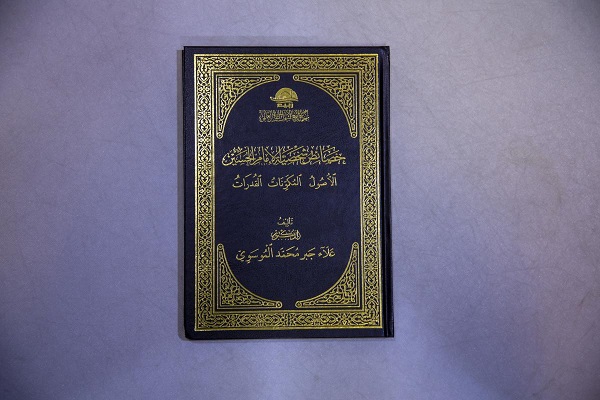 خصائص شخصية الإمام الحسين
الأصول المكونات القدرات
تأليف
الدكتور
علاء جبر محمد الموسوي